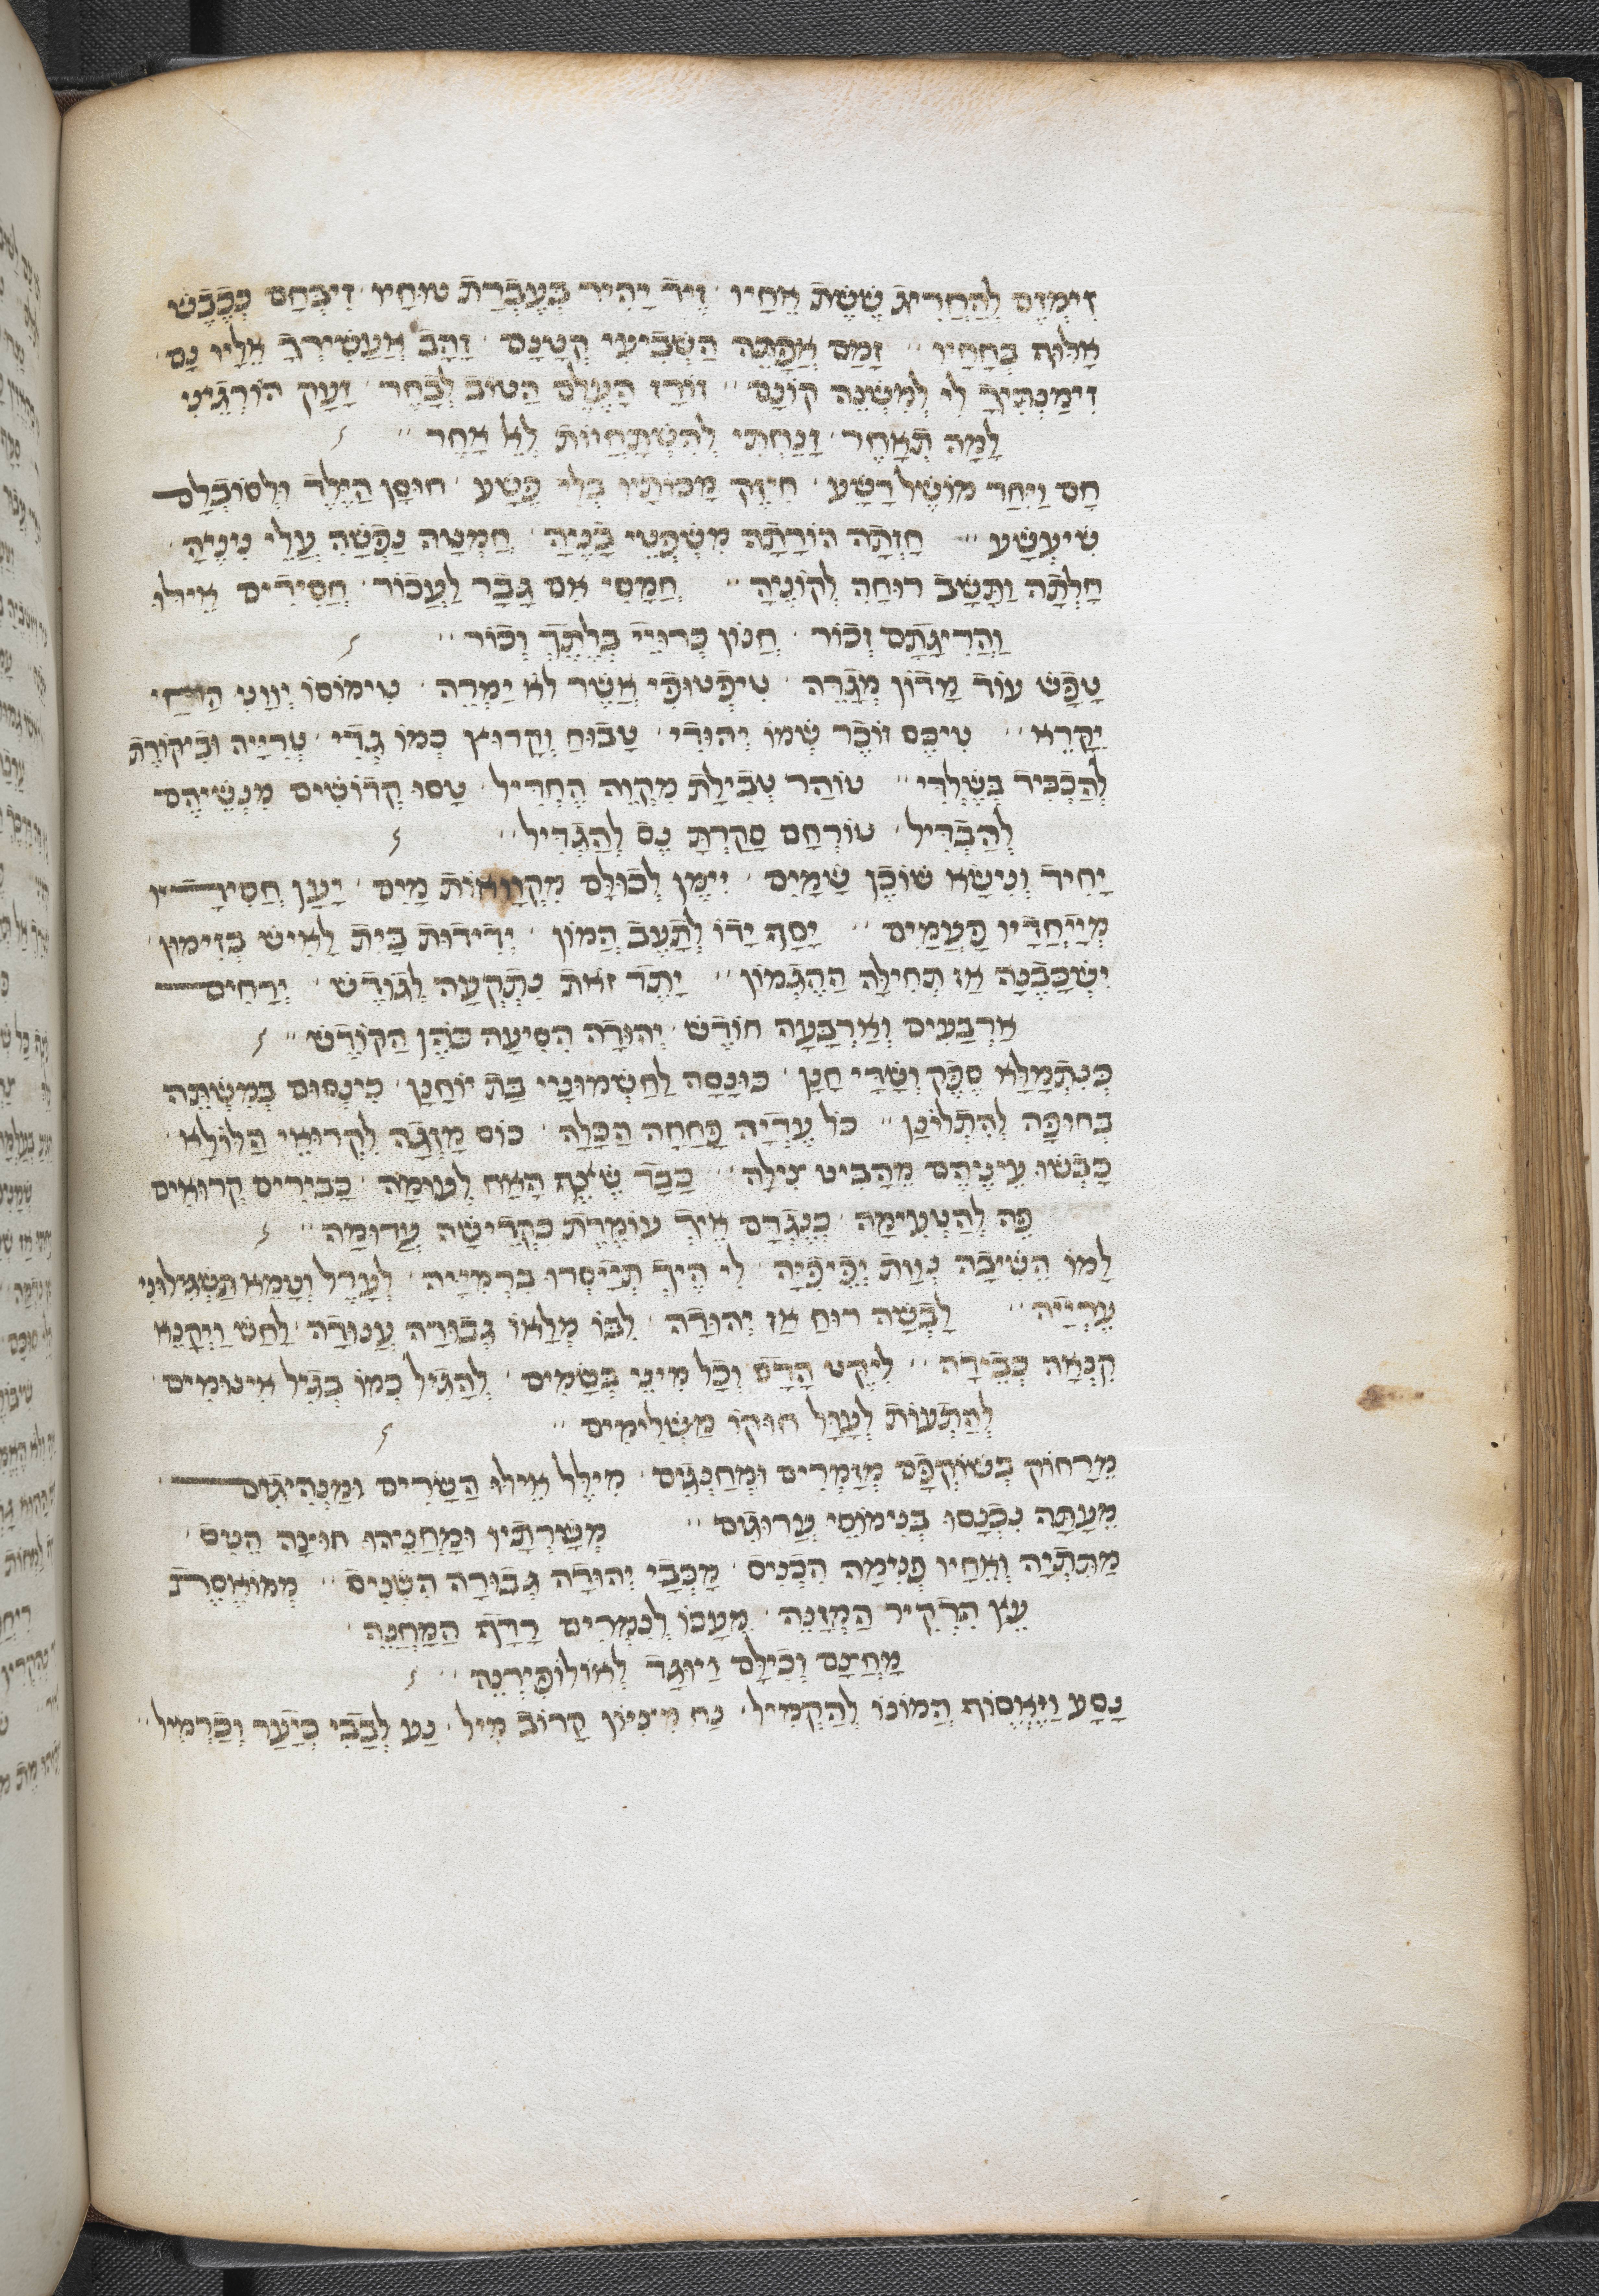 זימזם להחריג ששת אחיו זיד יהיר בעברת טוחיו זיבחם ככבש
אלוף בחחיו זמם אפתה השביעי קטנם זהב אעשירך אליו נם
זימנתיך לי למשנה קונם זורז העלם הטוב לבחר זעק הורגיני
למה תאחר זנחתי להשתחוות לא אחר
חם ויחר מושל רשע חיזק מכותיו בלי פשע חוסן הילד ולסובלם
שיעשע חזתה הורתה משפטי בניה חמטה נפשה עלי ניניה
חלתה ותשב רוחה לקוניה חמסי אם גבר לעכור חסידים אילו
והריגתם זכור חנון בלתך וכור
טפש עוד מדון מגרה טיפטופי אשר לא ימרה טימוסו יווני
יקרא טיכס זוכר שמו יהודי טבוח וקרוץ כמו גדי עריה וביקורת
להכביד בשלדי טוהר טבילת מקוה החדיל טסו קדושים מנשיהם
להבדיל טורחם סקרת נס להגדיל
יחיד ונישא שוכן שמים זימן לכולם מקואות מים יען חסידיו
מייחדיו פעמים יסף ידו לתעב המון ידידות בית לאיש בזימון
ישכבנה אז תחילה ההגמון יתד זאת נתקעה לגודש ירחים
ארבעים וארבעה חודש יהודה הסיעה כהן הקודש
כנתמלא ספק ושדי חנן כונסה לחשמוני בת יוחנן כינסום במשתה
בחופה להתלונן כל עדיה פחחה הכלה כוס מזגה לקרואי הלולא
כבשו עיניהם מהביט צילה כבר שצף האח לעומה כבירים קרואים
פה להטעימה כנגדם איך עומדת כקדישה ערומה
למו השיבה נוות יפיפיה לי היך תייסרו ברמייה לערל וטמא תשגילוני
עריה לבשה רוח אז יהודה לבו מלאו גבורה ענודה לחש ויקנא
קנאה כבידה ליקט הדס וכל מיני בשמים להגיל כמו בגיל אינומים
להתעות לעול חוקו משלימים
מרחוק בשוקפם מזמרים ומחנגים מילל אילו השרים ומנהיגים
מעתה נכנסו בנימוסי ערוגים משרתיו ומחניהו חוצה הטס
מתתיה ואחיו פנימה הכניס מכבי יהודה גבורה השניס
עץ הרקיר המזנה מעכו לכמרים רדף המחנה
מחצם וכילם ויוגד לאולופירנה
נסע ויאסוף המונו להקמיל נח מציון קרוב מיל נע לבבי כיער וכרמיל